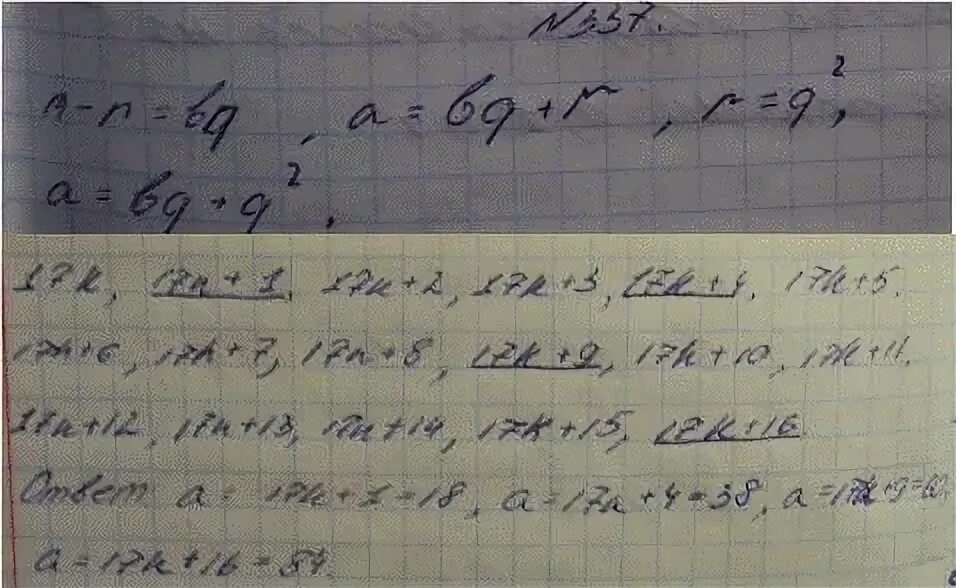 N337.
a-r=bq, a=bq+r, r=q²,
a=bq+q²,
17k, 17k+1, 17k+2, 17k+3, 17k+4, 17k+5,
17k+6, 17k+7, 17k+8, 17k+9, 17k+10, 17k+11,
17k+12, 17k+13, 17k+14, 17k+15, 17k+16
Ответ a=17k+1=18, a=17k+4=38, a=17k+9=
a=17k+16=84